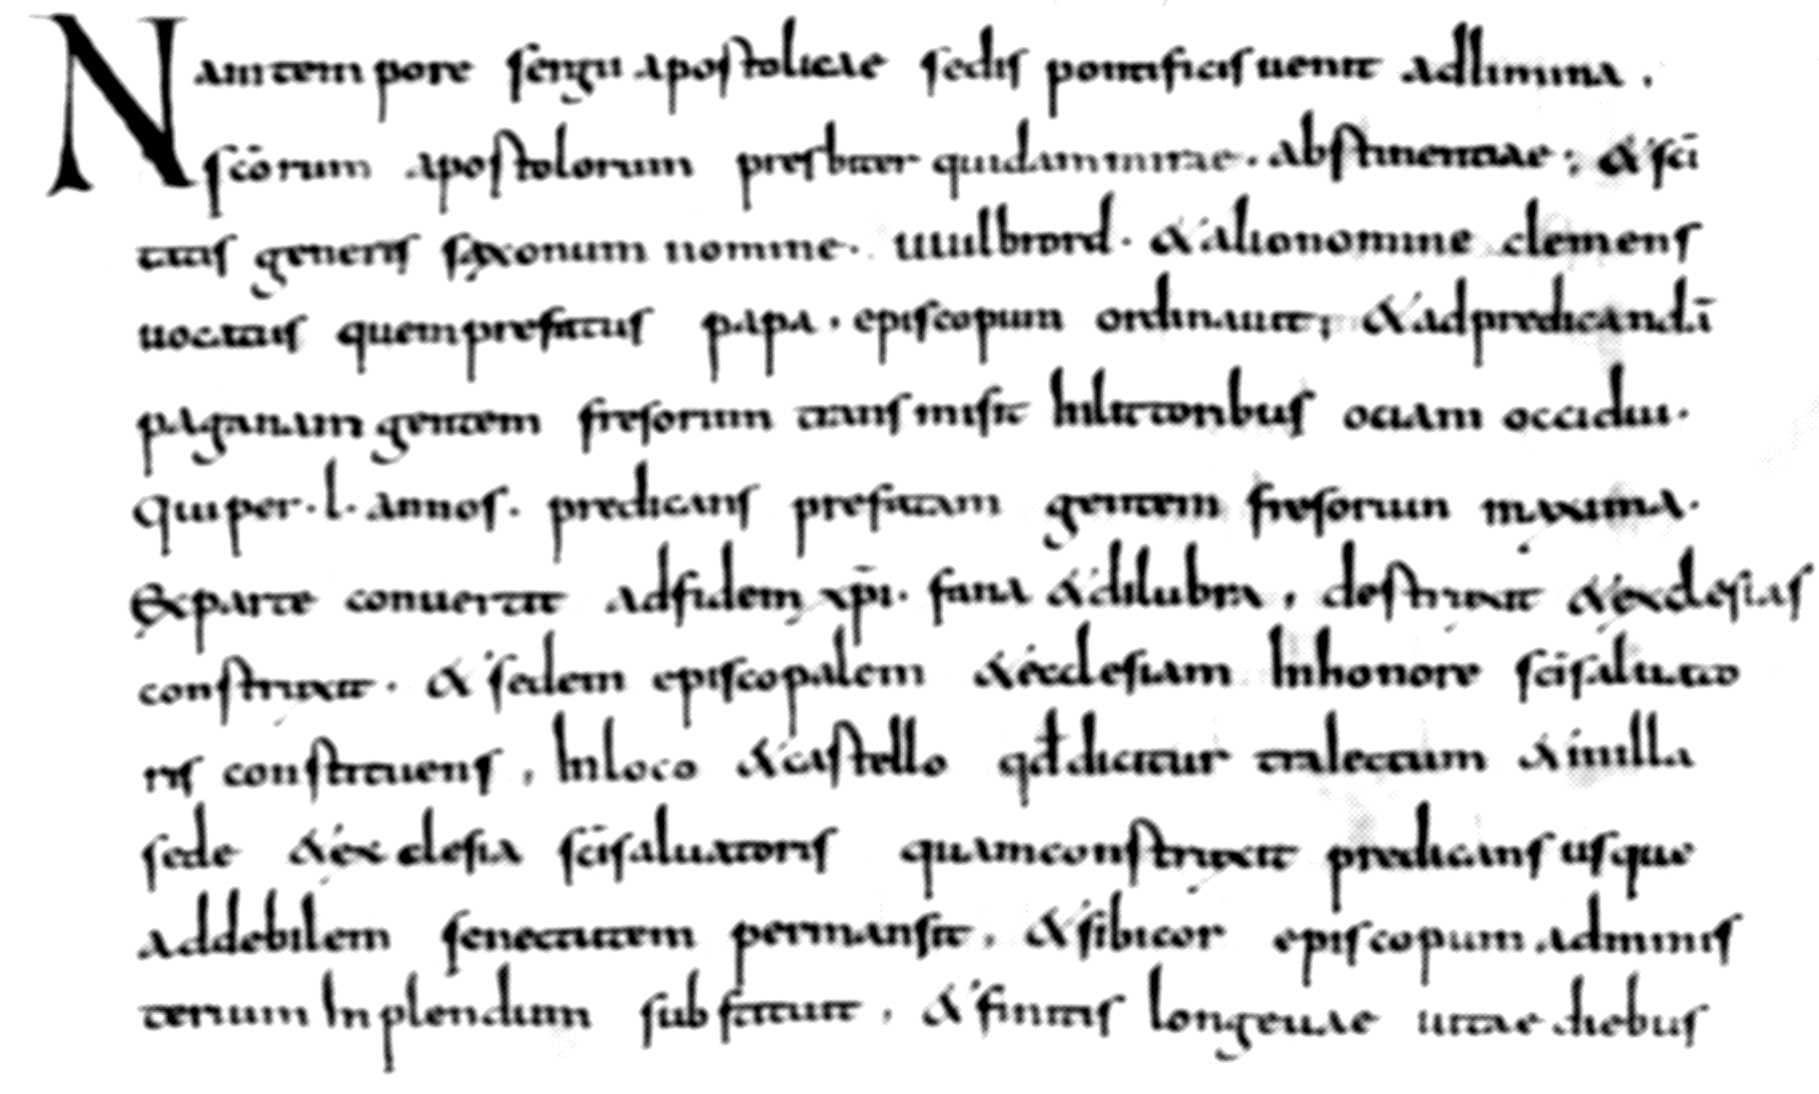 Nam tempore sergii apostolicae sedis pontificis uenit adlimina.
scōrum apostolorum presbiter quidam mirae. abstinentiae; & sci
tatis generis saxonum nomine. uuilbrord. & alionomine clemens
uocatus quem prefatus papa. episcopum ordinauit; & adpredicandā
paganam gentem fresorum transmisit Inlitoribus ociani occidui.
qui per .l. annos. predicans prefatam gentem fresorum maxima.
Ex parte conuertit adfidem xp̄i. fana & dilubra, destruxit & exclesias
construxit. & sedem episcopalem & ecclesiam Inhonore scīsaluato
ris constituens, Inloco & castello qđ dicitur traiectum & inilla
sede & exclesia scīsaluatoris quam construxit predicans usque
addebilem senectutem permansit, & sibicor episcopum adminis
terium Inplendum substituit, & finitis longeuae uitae diebus